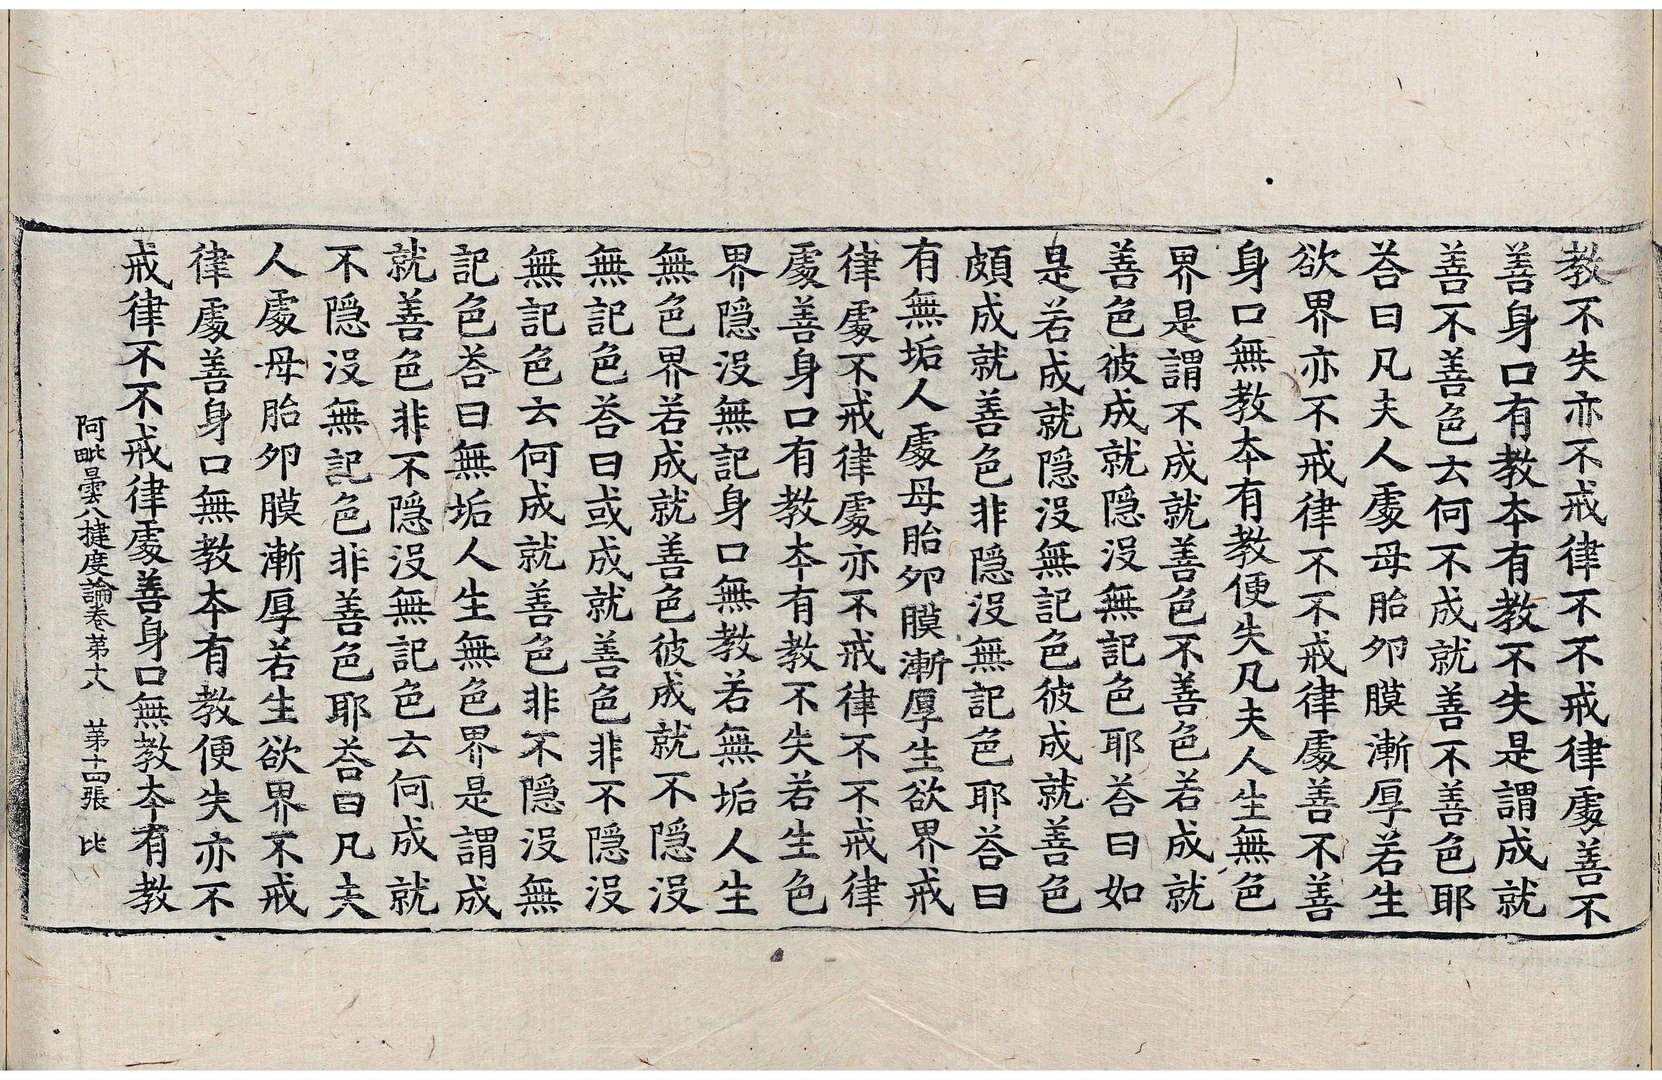 教不失亦不戒律不不戒律處善不
善身口有教本有教不失是謂成就
善不善色云何不成就善不善色耶
荅曰凡夫人處母胎夘膜漸厚若生
欲界亦不戒律不不戒律處善不善
身口無教本有教便失凡夫人生無色
界是謂不成就善色不善色若成就
善色彼成就隱沒無記色耶荅曰如
是若成就隱沒無記色彼成就善色
頗成就善色非隱沒無記色耶荅曰
有無垢人處母胎夘膜漸厚生欲界戒
律處不戒律處亦不戒律不不戒律
處善身口有教本有教不失若生色
界隱沒無記身口無教若無垢人生
無色界若成就善色彼成就不隱沒
無記色荅曰或成就善色非不隱沒
無記色云何成就善色非不隱沒無
記色荅曰無垢人生無色界是謂成
就善色非不隱沒無記色云何成就
不隱沒無記色非善色耶荅曰凡夫
人處母胎夘膜漸厚若生欲界不戒
律處善身口無教本有教便失亦不
戒律不不戒律處善身口無教本有教
阿毗曇八揵度論卷第十八 第十四張 比